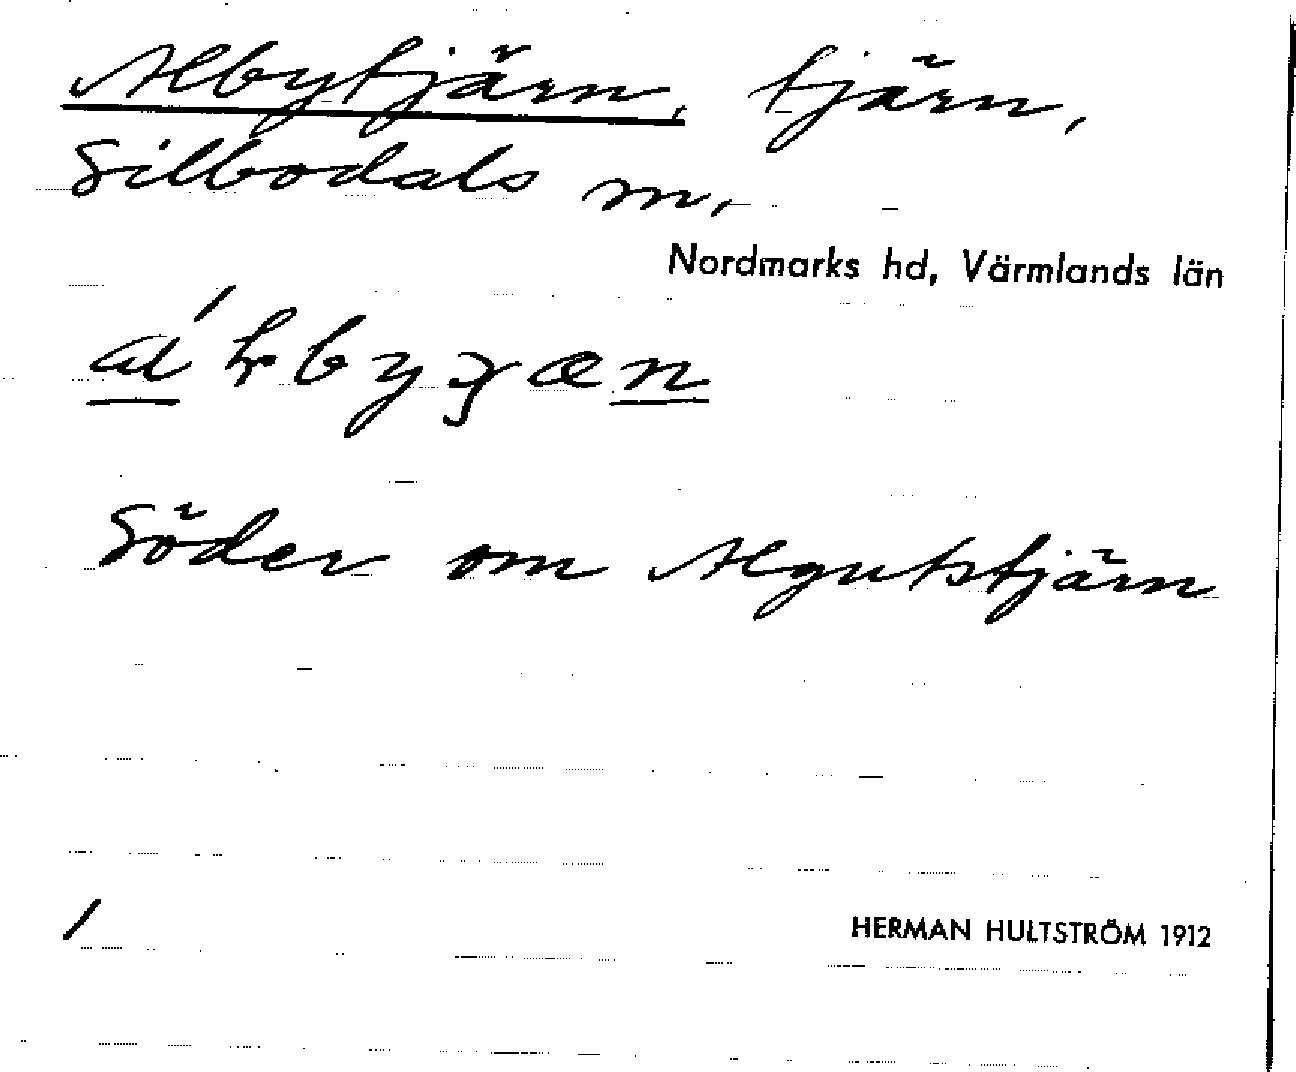 Albytjärn, tjärn,
Silbodals sn,
Nordmarks hd, Värmlands län
Söder om Algutstjärn
/
HERMAN HULTSTRÖM 1912